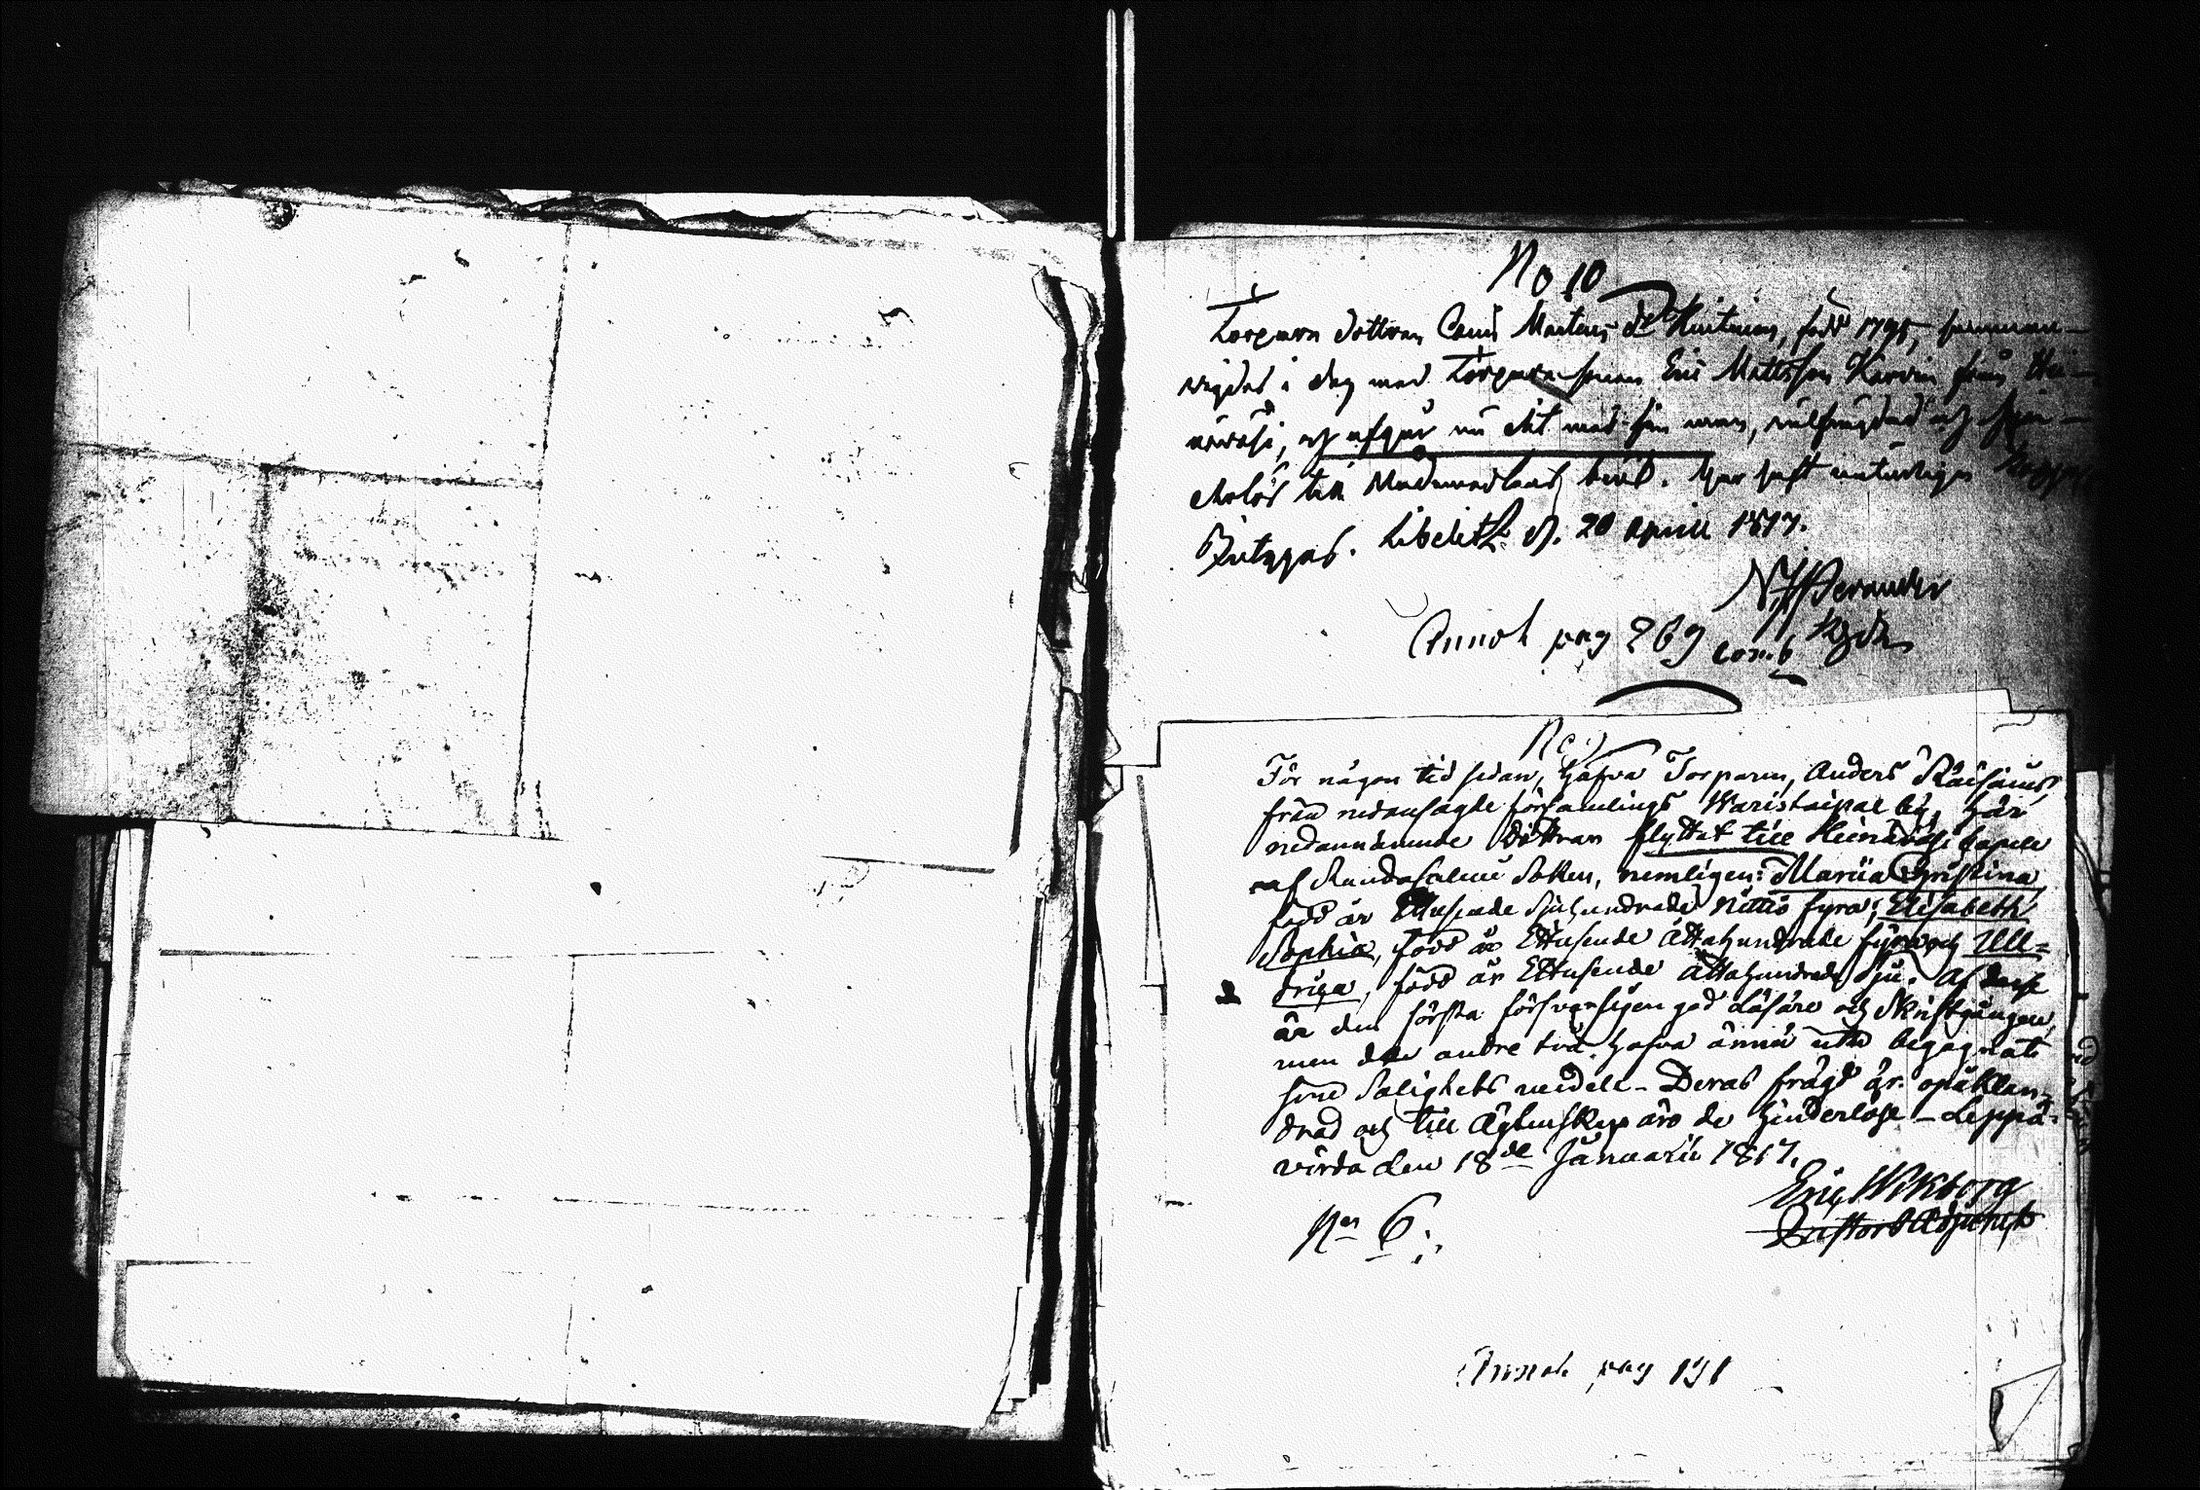 No 10
Torpare dottren Martens dr Huttunen, född 1795, samman-
vigdes i dag med Torpare sonen Eric Mattsson Karvin från Hei-
nävesi, och afgår nu dit med sin man, och
till Nademantlands been. Har haft naturliga koppor
Libelits d. 20 April 1817.
Annot pag 269
No 1
För någon tid sedan, hafva Torparen, Anders Räisäins
från nedansagde församlings Waristaipal by, här
nedannämnde döttrar flyttat till Heinävesi Capell
af Randasalmi Soken, nemligen: Maria Christina
född år Ettusende Sjuhundrade Nittio fyra; Elisabeth
Sophia, född år Ettusende Åttahundrade fyra och Ull=
drica, född år Ettusende Åttahundrade Sju. Af desse
är den första försvarligen god Läsare och Skriftgången,
men de andre två hafva ännu icke begagnat
sine Salighets medel - Deras frägd är oqväklan-
drad och till Ägtenskap äro de hinderlöse - Leppä-
virda den 18de Januarii 1817.
Eric Wikborg
Pastors Adjunct
No 6
Annot pag 191